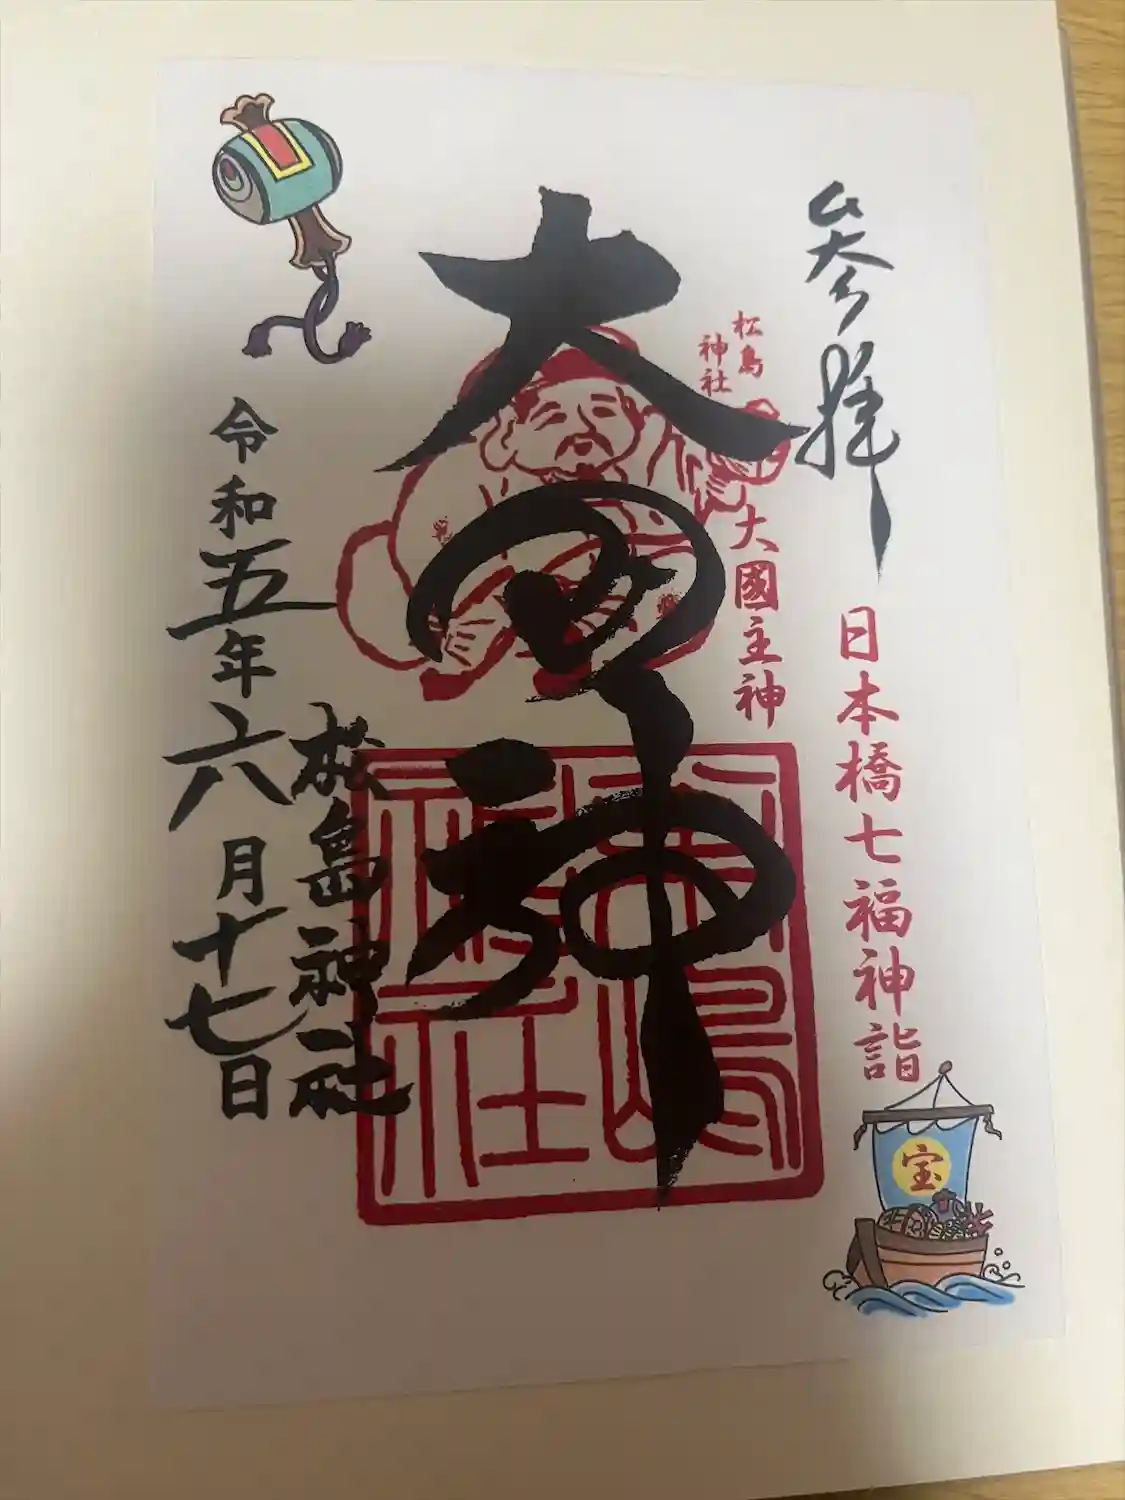 参拝
日本橋七福神詣
宝
松島
神社
大國主神
大黒神
松島神社
令和五年六月十七日